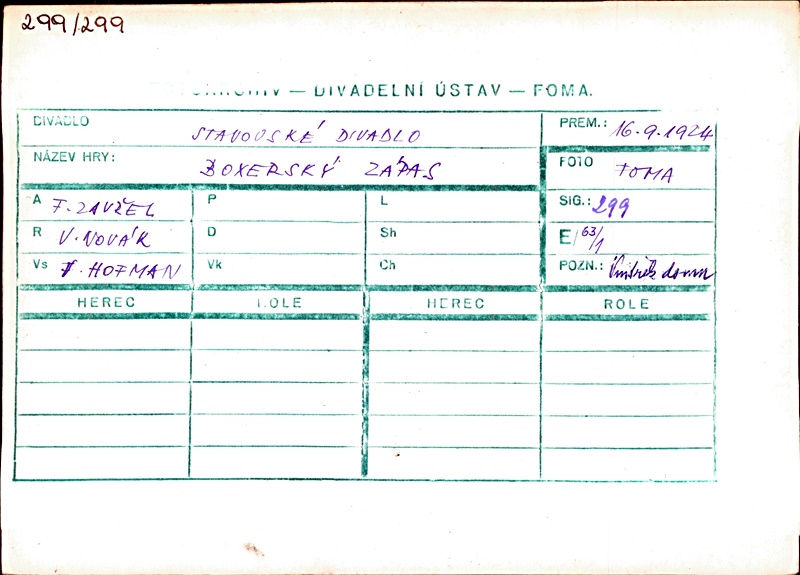 299/299
— DIVADELNÍ ÚSTAV — FOMA.
DIVADLO STAVOVSKÉ DIVADLO PREM.: 16.9.1924
NÁZEV HRY: BOXERSKÝ ZÁPAS FOTO FOMA
A F. ZAVŘEL P L SIG.: 299
R V. NOVÁK D Sh E/ 63/1
Vs V. HOFMAN Vk Ch POZN.: Vnitřek domu
HEREC ROLE HEREC ROLE